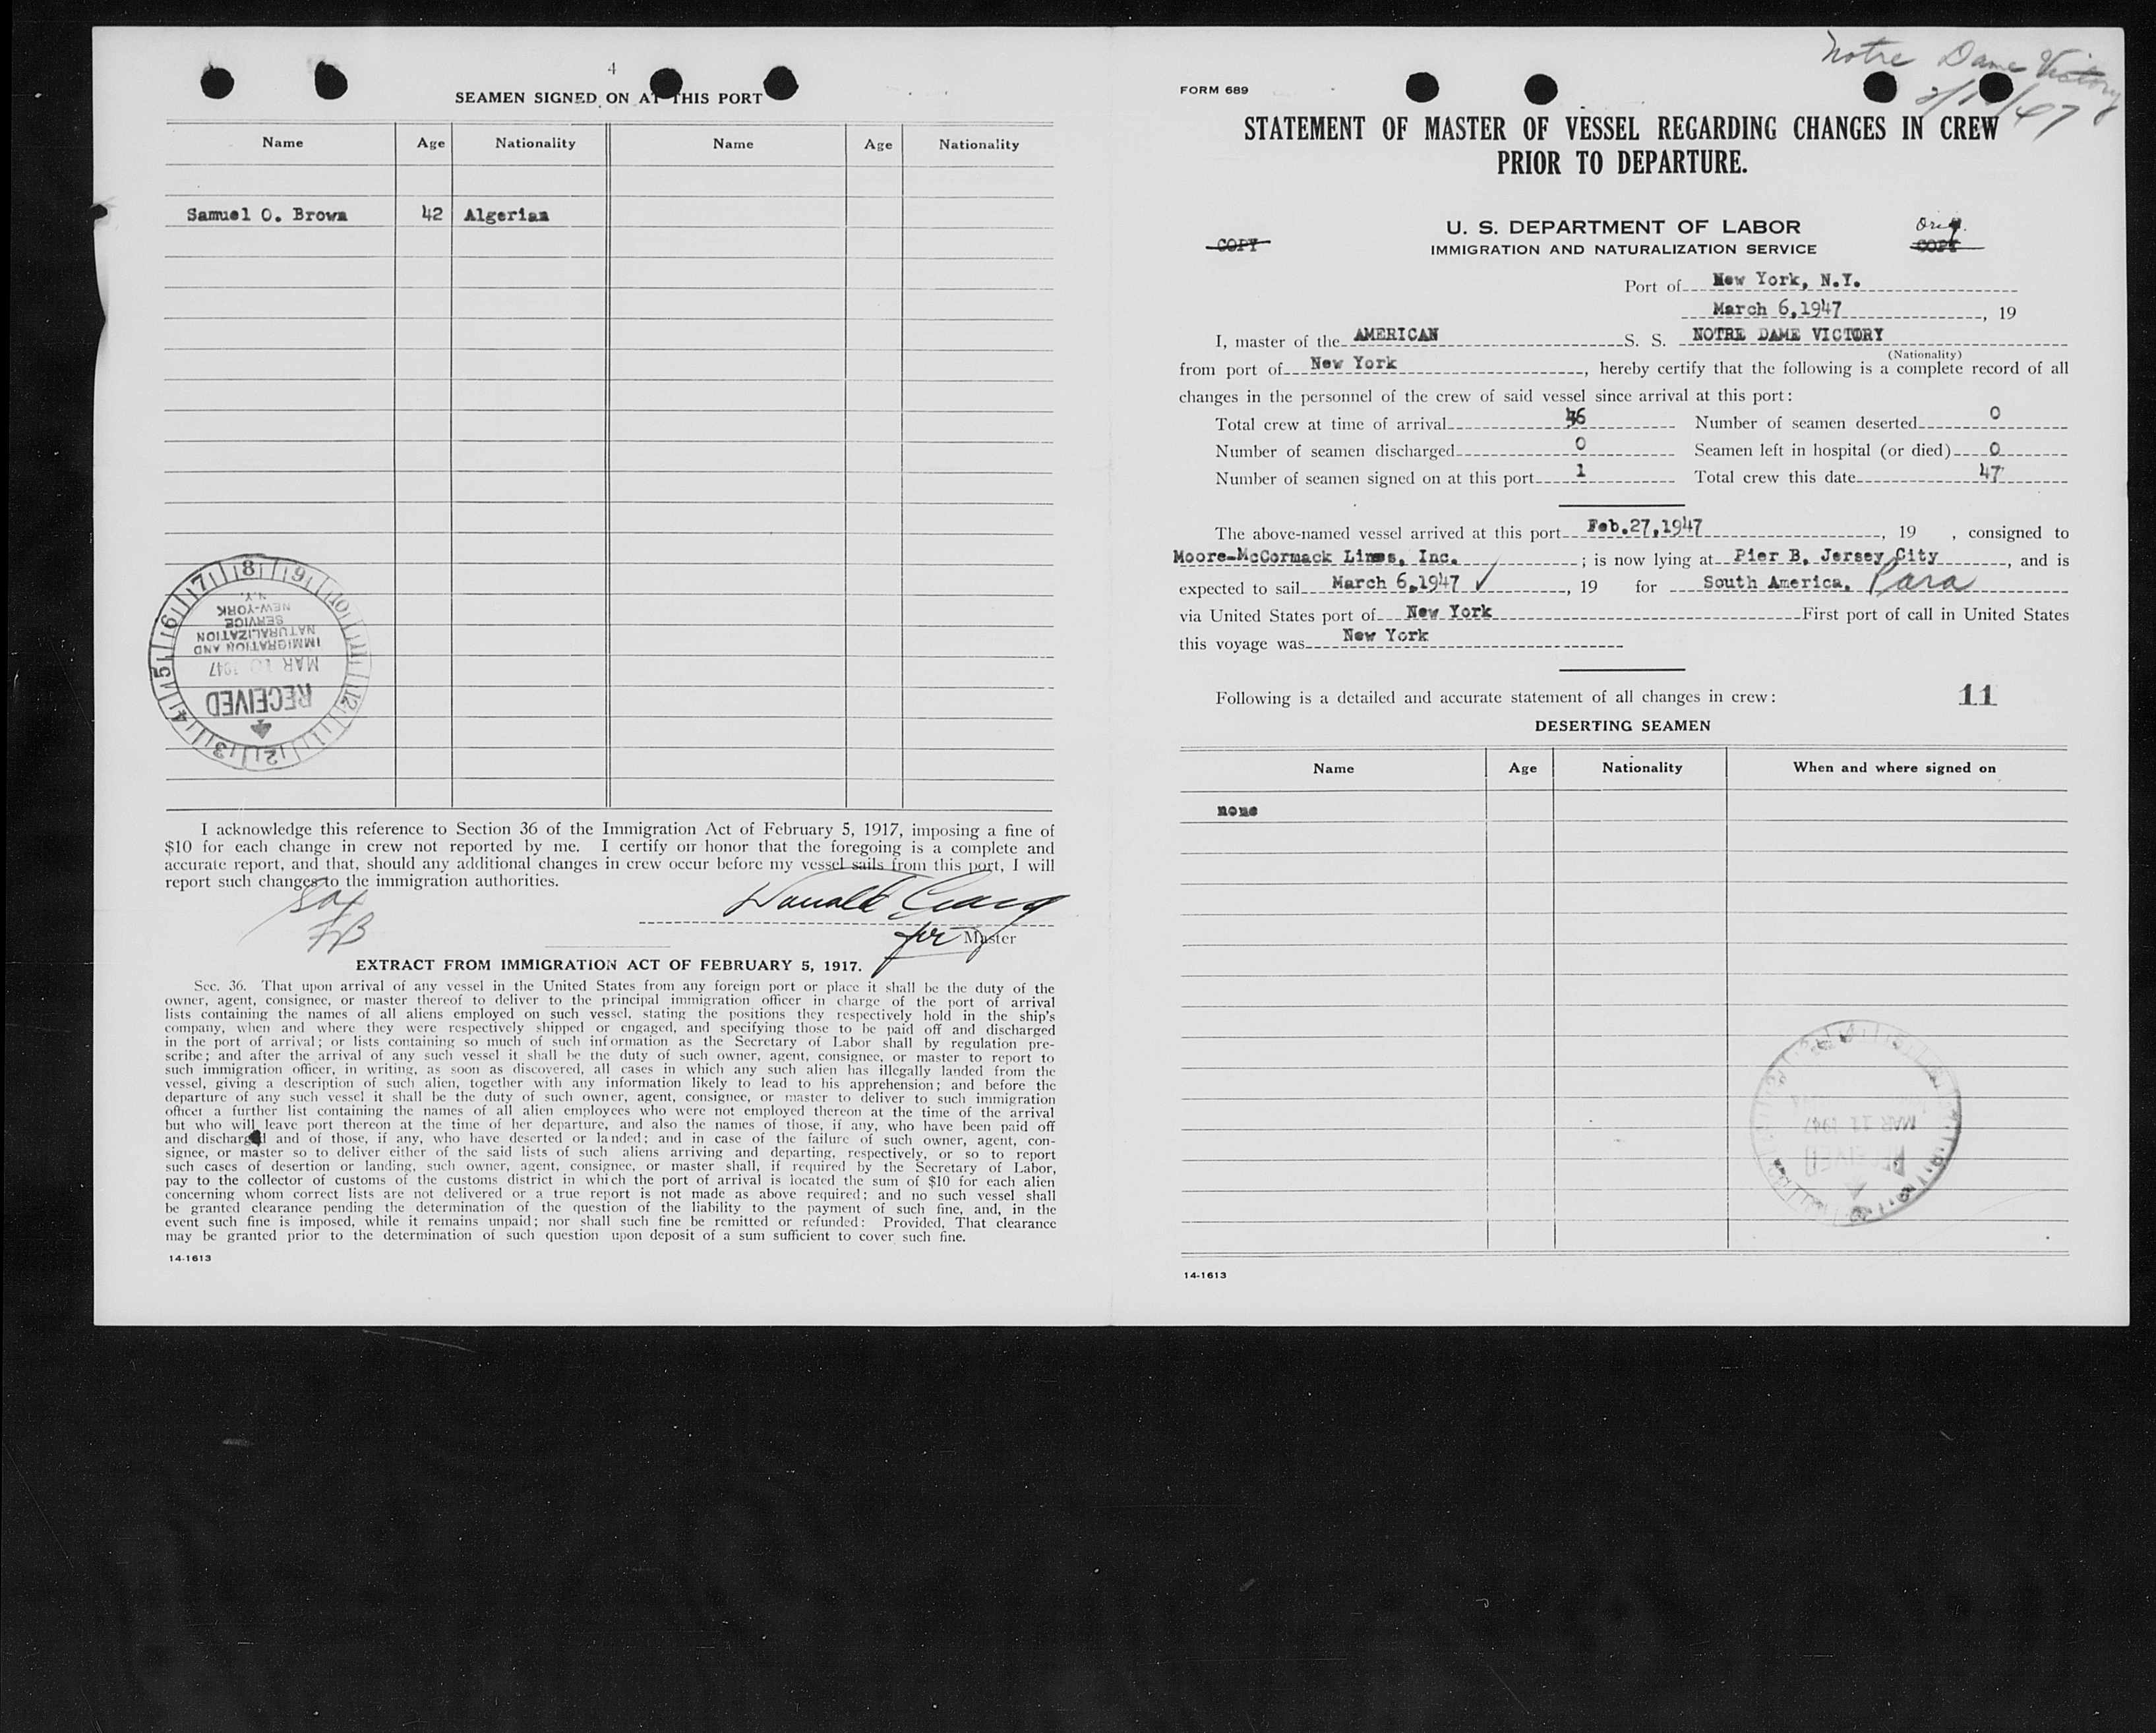 4
SEAMEN SIGNED ON AT THIS PORT
Name Age Nationality Name Age Nationality
Samuel O. Brown 42 Algerian
8 9 10 11 12 1 2 3 4 5 6 7
RECEIVED
MAR 10 1947
IMMIGRATION AND
NATURALIZATION
SERVICE
NEW-YORK
N.Y.
I acknowledge this reference to Section 36 of the Immigration Act of February 5, 1917, imposing a fine of
$10 for each change in crew not reported by me. I certify on honor that the foregoing is a complete and
accurate report, and that, should any additional changes in crew occur before my vessel sails from this port, I will
report such changes to the immigration authorities.
Donald Craig
for Master
EXTRACT FROM IMMIGRATION ACT OF FEBRUARY 5, 1917.
Sec. 36. That upon arrival of any vessel in the United States from any foreign port or place it shall be the duty of the
owner, agent, consignee, or master thereof to deliver to the principal immigration officer in charge of the port of arrival
lists containing the names of all aliens employed on such vessel, stating the positions they respectively hold in the ship's
company, when and where they were respectively shipped or engaged, and specifying those to be paid off and discharged
in the port of arrival; or lists containing so much of such information as the Secretary of Labor shall by regulation pre-
scribe; and after the arrival of any such vessel it shall be the duty of such owner, agent, consignee, or master to report to
such immigration officer, in writing, as soon as discovered, all cases in which any such alien has illegally landed from the
vessel, giving a description of such alien, together with any information likely to lead to his apprehension; and before the
departure of any such vessel it shall be the duty of such owner, agent, consignee, or master to deliver to such immigration
officer a further list containing the names of all alien employees who were not employed thereon at the time of the arrival
but who will leave port thereon at the time of her departure, and also the names of those, if any, who have been paid off
and discharged and of those, if any, who have deserted or landed; and in case of the failure of such owner, agent, con-
signee, or master so to deliver either of the said lists of such aliens arriving and departing, respectively, or so to report
such cases of desertion or landing, such owner, agent, consignee, or master shall, if required by the Secretary of Labor,
pay to the collector of customs of the customs district in which the port of arrival is located the sum of $10 for each alien
concerning whom correct lists are not delivered or a true report is not made as above required; and no such vessel shall
be granted clearance pending the determination of the question of the liability to the payment of such fine, and, in the
event such fine is imposed, while it remains unpaid; nor shall such fine be remitted or refunded: Provided, That clearance
may be granted prior to the determination of such question upon deposit of a sum sufficient to cover such fine.
14-1613
Notre Dame Victory
FORM 689
STATEMENT OF MASTER OF VESSEL REGARDING CHANGES IN CREW
PRIOR TO DEPARTURE.
U. S. DEPARTMENT OF LABOR
Orig.
COPY IMMIGRATION AND NATURALIZATION SERVICE COPY
Port of New York, N.Y.
March 6,1947, 19
I, master of the AMERICAN S. S. NOTRE DAME VICTORY
(Nationality)
from port of New York, hereby certify that the following is a complete record of all
changes in the personnel of the crew of said vessel since arrival at this port:
Total crew at time of arrival 46 Number of seamen deserted 0
Number of seamen discharged 0 Seamen left in hospital (or died) 0
Number of seamen signed on at this port 1 Total crew this date 47
The above-named vessel arrived at this port Feb.27,1947, 19 , consigned to
Moore-McCormack Lines, Inc. ; is now lying at Pier B, Jersey City, and is
expected to sail March 6,1947 ✓, 19 for South America. Para
via United States port of New York First port of call in United States
this voyage was New York
Following is a detailed and accurate statement of all changes in crew: 11
DESERTING SEAMEN
Name Age Nationality When and where signed on
none
RECEIVED
MAR 11 1947
14-1613